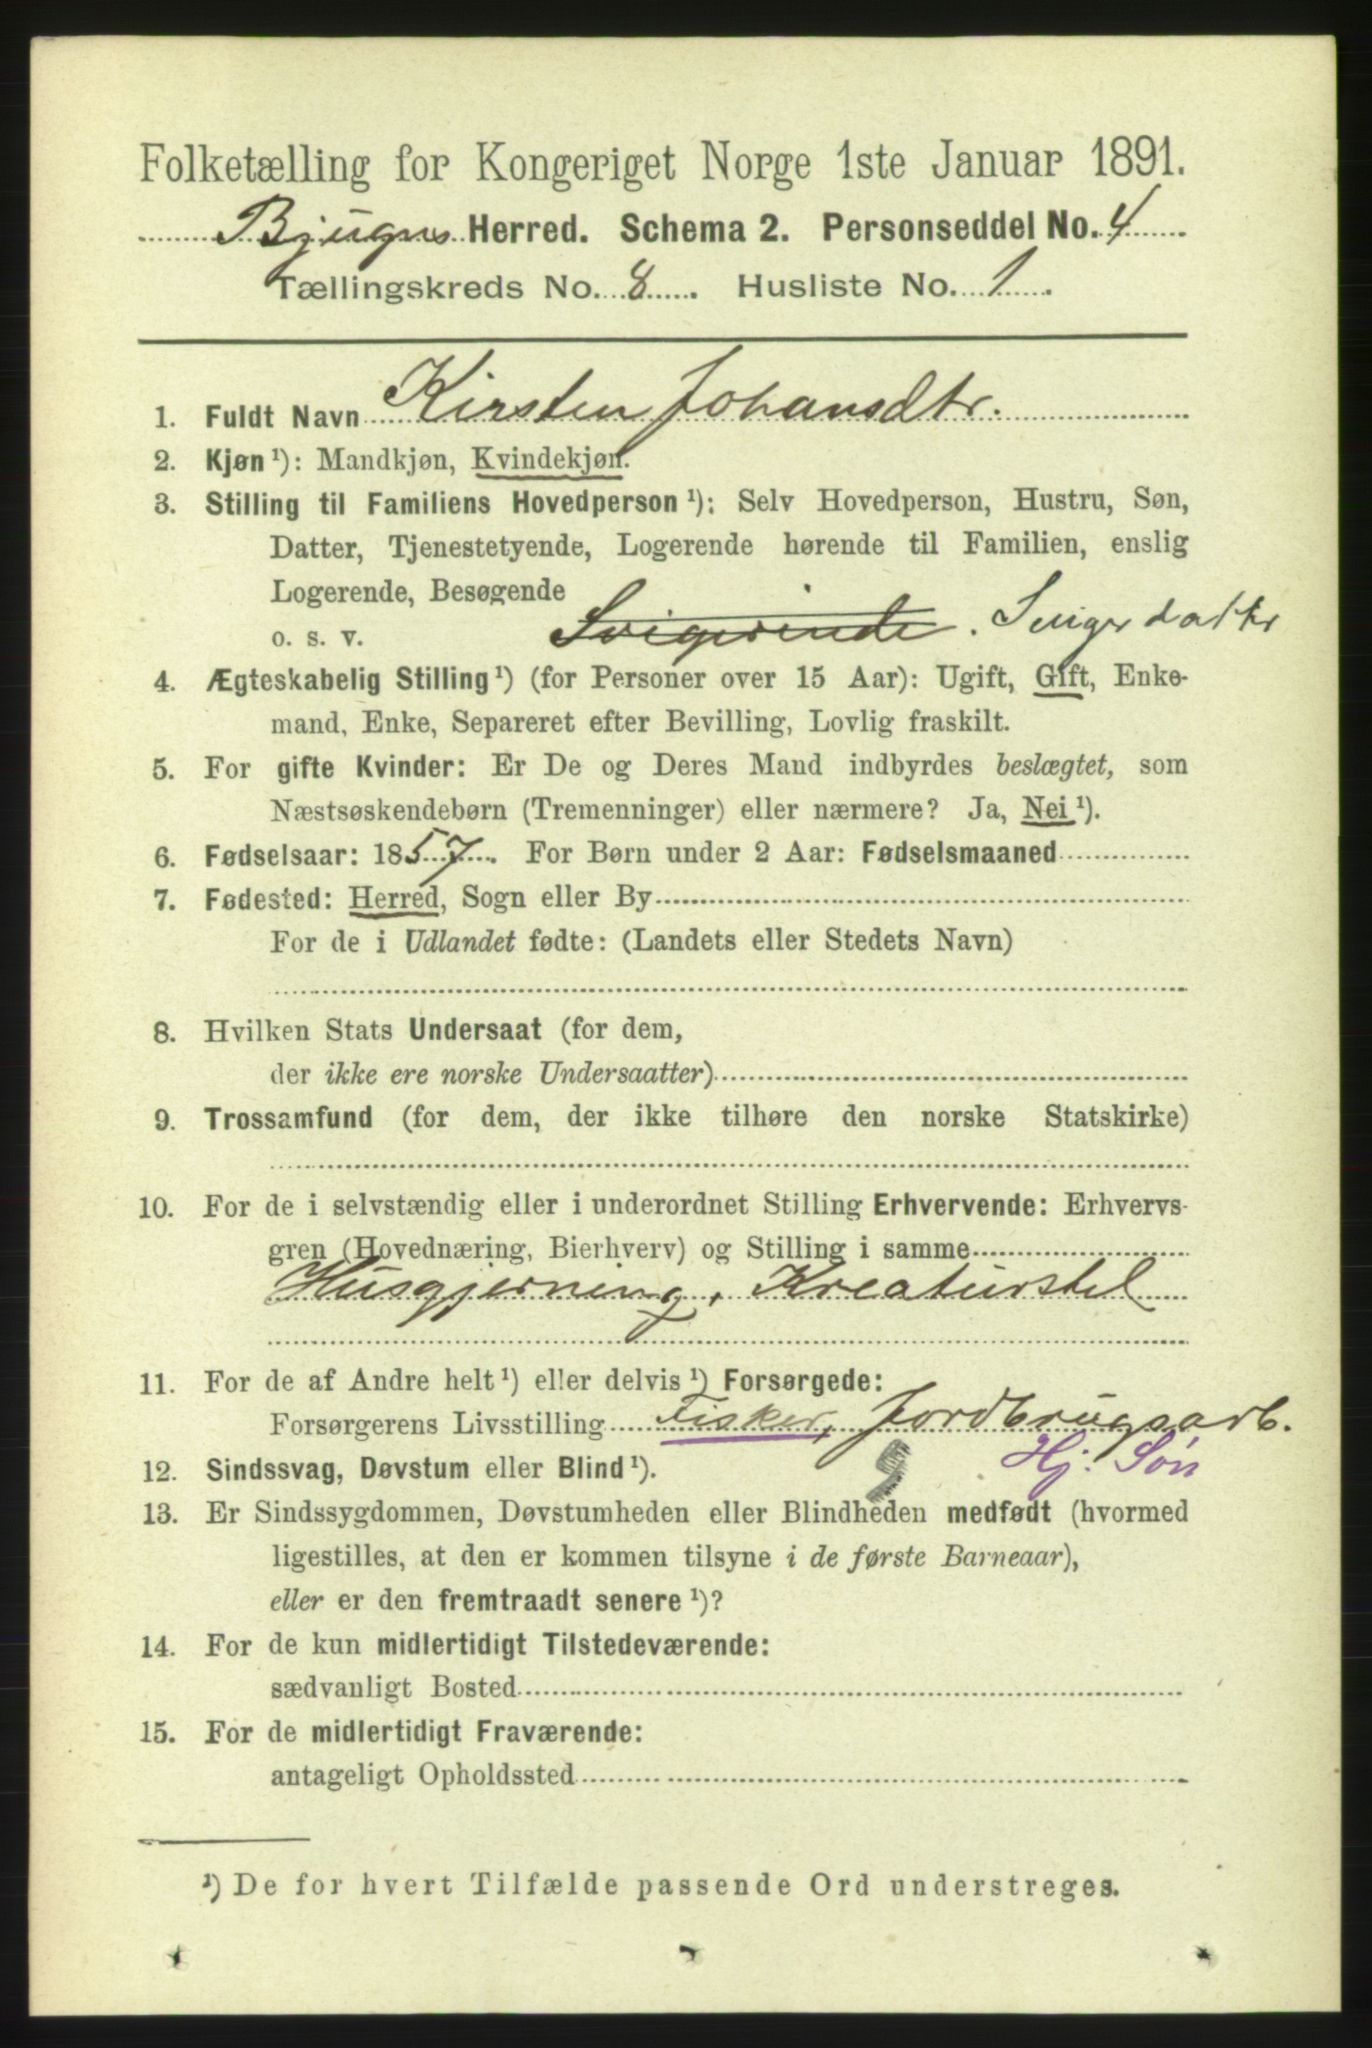 Folketælling for Kongeriget Norge 1ste Januar 1891.
Bjugns Herred. Schema 2. Personseddel No. 4
Tællingskreds No. 8. Husliste No. 1.
1. Fuldt Navn Kirsten Johansdtr.
2. Kjøn ¹): Mandkjøn, Kvindekjøn.
3. Stilling til Familiens Hovedperson ¹): Selv Hovedperson, Hustru, Søn,
Datter, Tjenestetyende, Logerende hørende til Familien, enslig
Logerende, Besøgende
o. s. v. Svigerinde. Svigerdatter
4. Ægteskabelig Stilling ¹) (for Personer over 15 Aar): Ugift, Gift, Enke-
mand, Enke, Separeret efter Bevilling, Lovlig fraskilt.
5. For gifte Kvinder: Er De og Deres Mand indbyrdes beslægtet, som
Næstsøskendebørn (Tremenninger) eller nærmere? Ja, Nei ¹).
6. Fødselsaar: 1857. For Børn under 2 Aar: Fødselsmaaned
7. Fødested: Herred, Sogn eller By
For de i Udlandet fødte: (Landets eller Stedets Navn)
8. Hvilken Stats Undersaat (for dem,
der ikke ere norske Undersaatter)
9. Trossamfund (for dem, der ikke tilhøre den norske Statskirke)
10. For de i selvstændig eller i underordnet Stilling Erhvervende: Erhvervs-
gren (Hovednæring, Bierhverv) og Stilling i samme
Husgjerning, Kreaturstel
11. For de af Andre helt ¹) eller delvis ¹) Forsørgede:
Forsørgerens Livsstilling Fisker, Jordbrugsarb.
12. Sindssvag, Døvstum eller Blind ¹). 9 Hj. Søn
13. Er Sindssygdommen, Døvstumheden eller Blindheden medfødt (hvormed
ligestilles, at den er kommen tilsyne i de første Barneaar),
eller er den fremtraadt senere ¹)?
14. For de kun midlertidigt Tilstedeværende:
sædvanligt Bosted
15. For de midlertidigt Fraværende:
antageligt Opholdssted
¹) De for hvert Tilfælde passende Ord understreges.